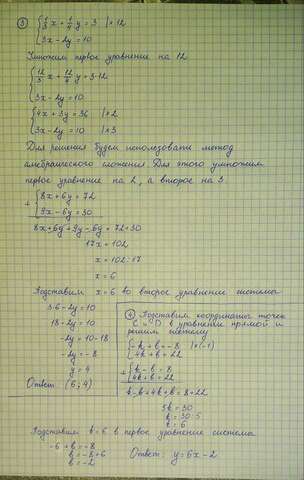 ③ { 1/3 x + 1/4 y = 3 |×12
3x - 2y = 10
Умножим первое уравнение на 12
{ 12/3 x + 12/4 y = 3·12
3x - 2y = 10
{ 4x + 3y = 36 |×2
3x - 2y = 10 |×3
Для решения будем использовать метод
алгебраического сложения Для этого умножим
первое уравнение на 2, а второе на 3
+ { 8x + 6y = 72
9x - 6y = 30
8x + 6y + 9y - 6y = 72 + 30
17x = 102
x = 102 : 17
x = 6
Подставим x = 6 во второе уравнение системы
3·6 - 2y = 10
18 - 2y = 10
-2y = 10 - 18
-2y = -8
y = 4
Ответ: (6; 4)
④ Подставим координаты точек
C и D в уравнение прямой и
решим систему
{ -k + b = -8 |×(-1)
4k + b = 22
+ { k - b = 8
4k + b = 22
k - b + 4k + b = 8 + 22
5k = 30
k = 30 : 5
k = 6
Подставим k = 6 в первое уравнение системы
-6 + b = -8
b = -8 + 6
b = -2
Ответ: y = 6x - 2